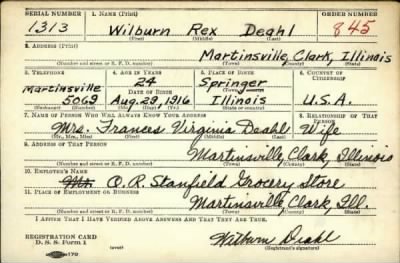 SERIAL NUMBER 1. NAME (Print) ORDER NUMBER
1313 Wilburn Rex Deahl 845
(First) (Middle) (Last)
2. ADDRESS (Print)
Martinsville, Clark, Illinois
(Number and street or R. F. D. number) (Town) (County) (State)
3. TELEPHONE 4. AGE IN YEARS 5. PLACE OF BIRTH 6. COUNTRY OF CITIZENSHIP
Martinsville 24 Springer
DATE OF BIRTH (Town or county)
5069 Aug. 29, 1916 Illinois U.S.A.
(Exchange) (Number) (Mo.) (Day) (Yr.) (State or country)
7. NAME OF PERSON WHO WILL ALWAYS KNOW YOUR ADDRESS 8. RELATIONSHIP OF THAT PERSON
Mrs. Frances Virginia Deahl Wife
(Mr., Mrs., Miss) (First) (Middle) (Last)
9. ADDRESS OF THAT PERSON
Martinsville, Clark, Illinois
(Number and street or R. F. D. number) (Town) (County) (State)
10. EMPLOYER'S NAME
Mr. O. R. Stanfield Grocery Store
11. PLACE OF EMPLOYMENT OR BUSINESS
Martinsville, Clark, Ill.
(Number and street or R. F. D. number) (Town) (County) (State)
I AFFIRM THAT I HAVE VERIFIED ABOVE ANSWERS AND THAT THEY ARE TRUE.
REGISTRATION CARD
D. S. S. Form 1 (over) Wilburn Deahl
(Registrant's signature)